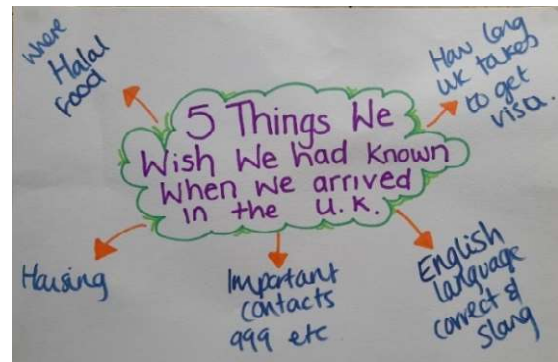 5 Things We
Wish We had known
when we arrived
in the U.K.
Where
Halal
Food
How long
UK takes
to get
visa.
Housing
Important
contacts
999 etc
English
language
correct &
slang